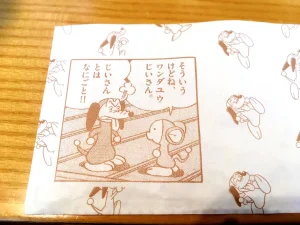 そういう
けどね、
ワンダユウ
じいさん、
じいさん
とは
なにごと!!